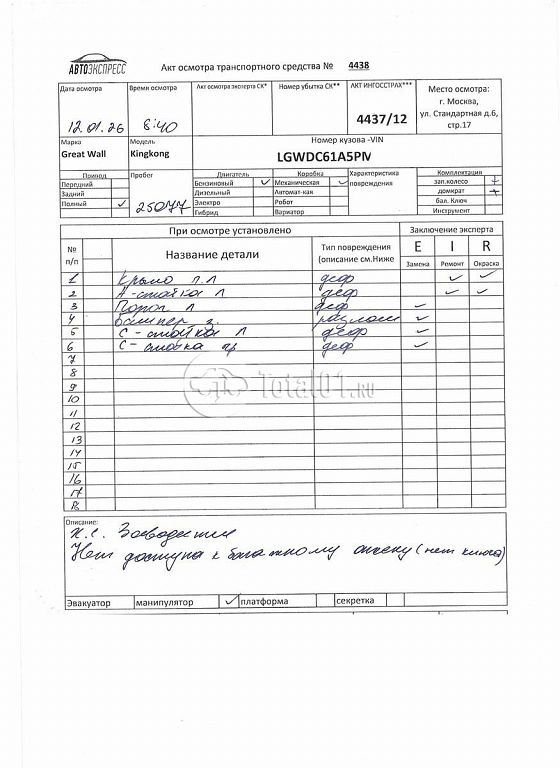 АВТОЭКСПРЕСС
Акт осмотра транспортного средства № 4438
Дата осмотра
Время осмотра
Акт осмотра эксперта СК*
Номер убытка СК**
АКТ ИНГОССТРАХ***
Место осмотра:
г. Москва,
ул. Стандартная д.6,
стр.17
12.01.26
8:40
4437/12
Марка
Модель
Номер кузова -VIN
Great Wall
Kingkong
LGWDC61A5PM
Привод
Пробег
Двигатель
Коробка
Характеристика повреждения
Комплектация
Передний
Бензиновый ✓
Механическая ✓
зап.колесо +
Задний
Дизельный
Автомат-кая
домкрат +
Полный ✓
25077
Электро
Робот
бал. Ключ
Гибрид
Вариатор
Инструмент
При осмотре установлено
Заключение эксперта
№ п/п
Название детали
Тип повреждения (описание см.Ниже
E I R
Замена Ремонт Окраска
1 Крыло п.л деф ✓ ✓
2 А-стойка л деф ✓ ✓
3 Порог л деф ✓
4 Бампер з. разлом ✓
5 С-стойка л деф ✓
6 С-стойка пр деф ✓
7
8
9
10
11
12
13
14
15
16
17
18
Total01.RU
Описание:
х.с. Заводится
Нет доступа к багажному отсеку (нет ключа)
Эвакуатор манипулятор ✓ платформа секретка